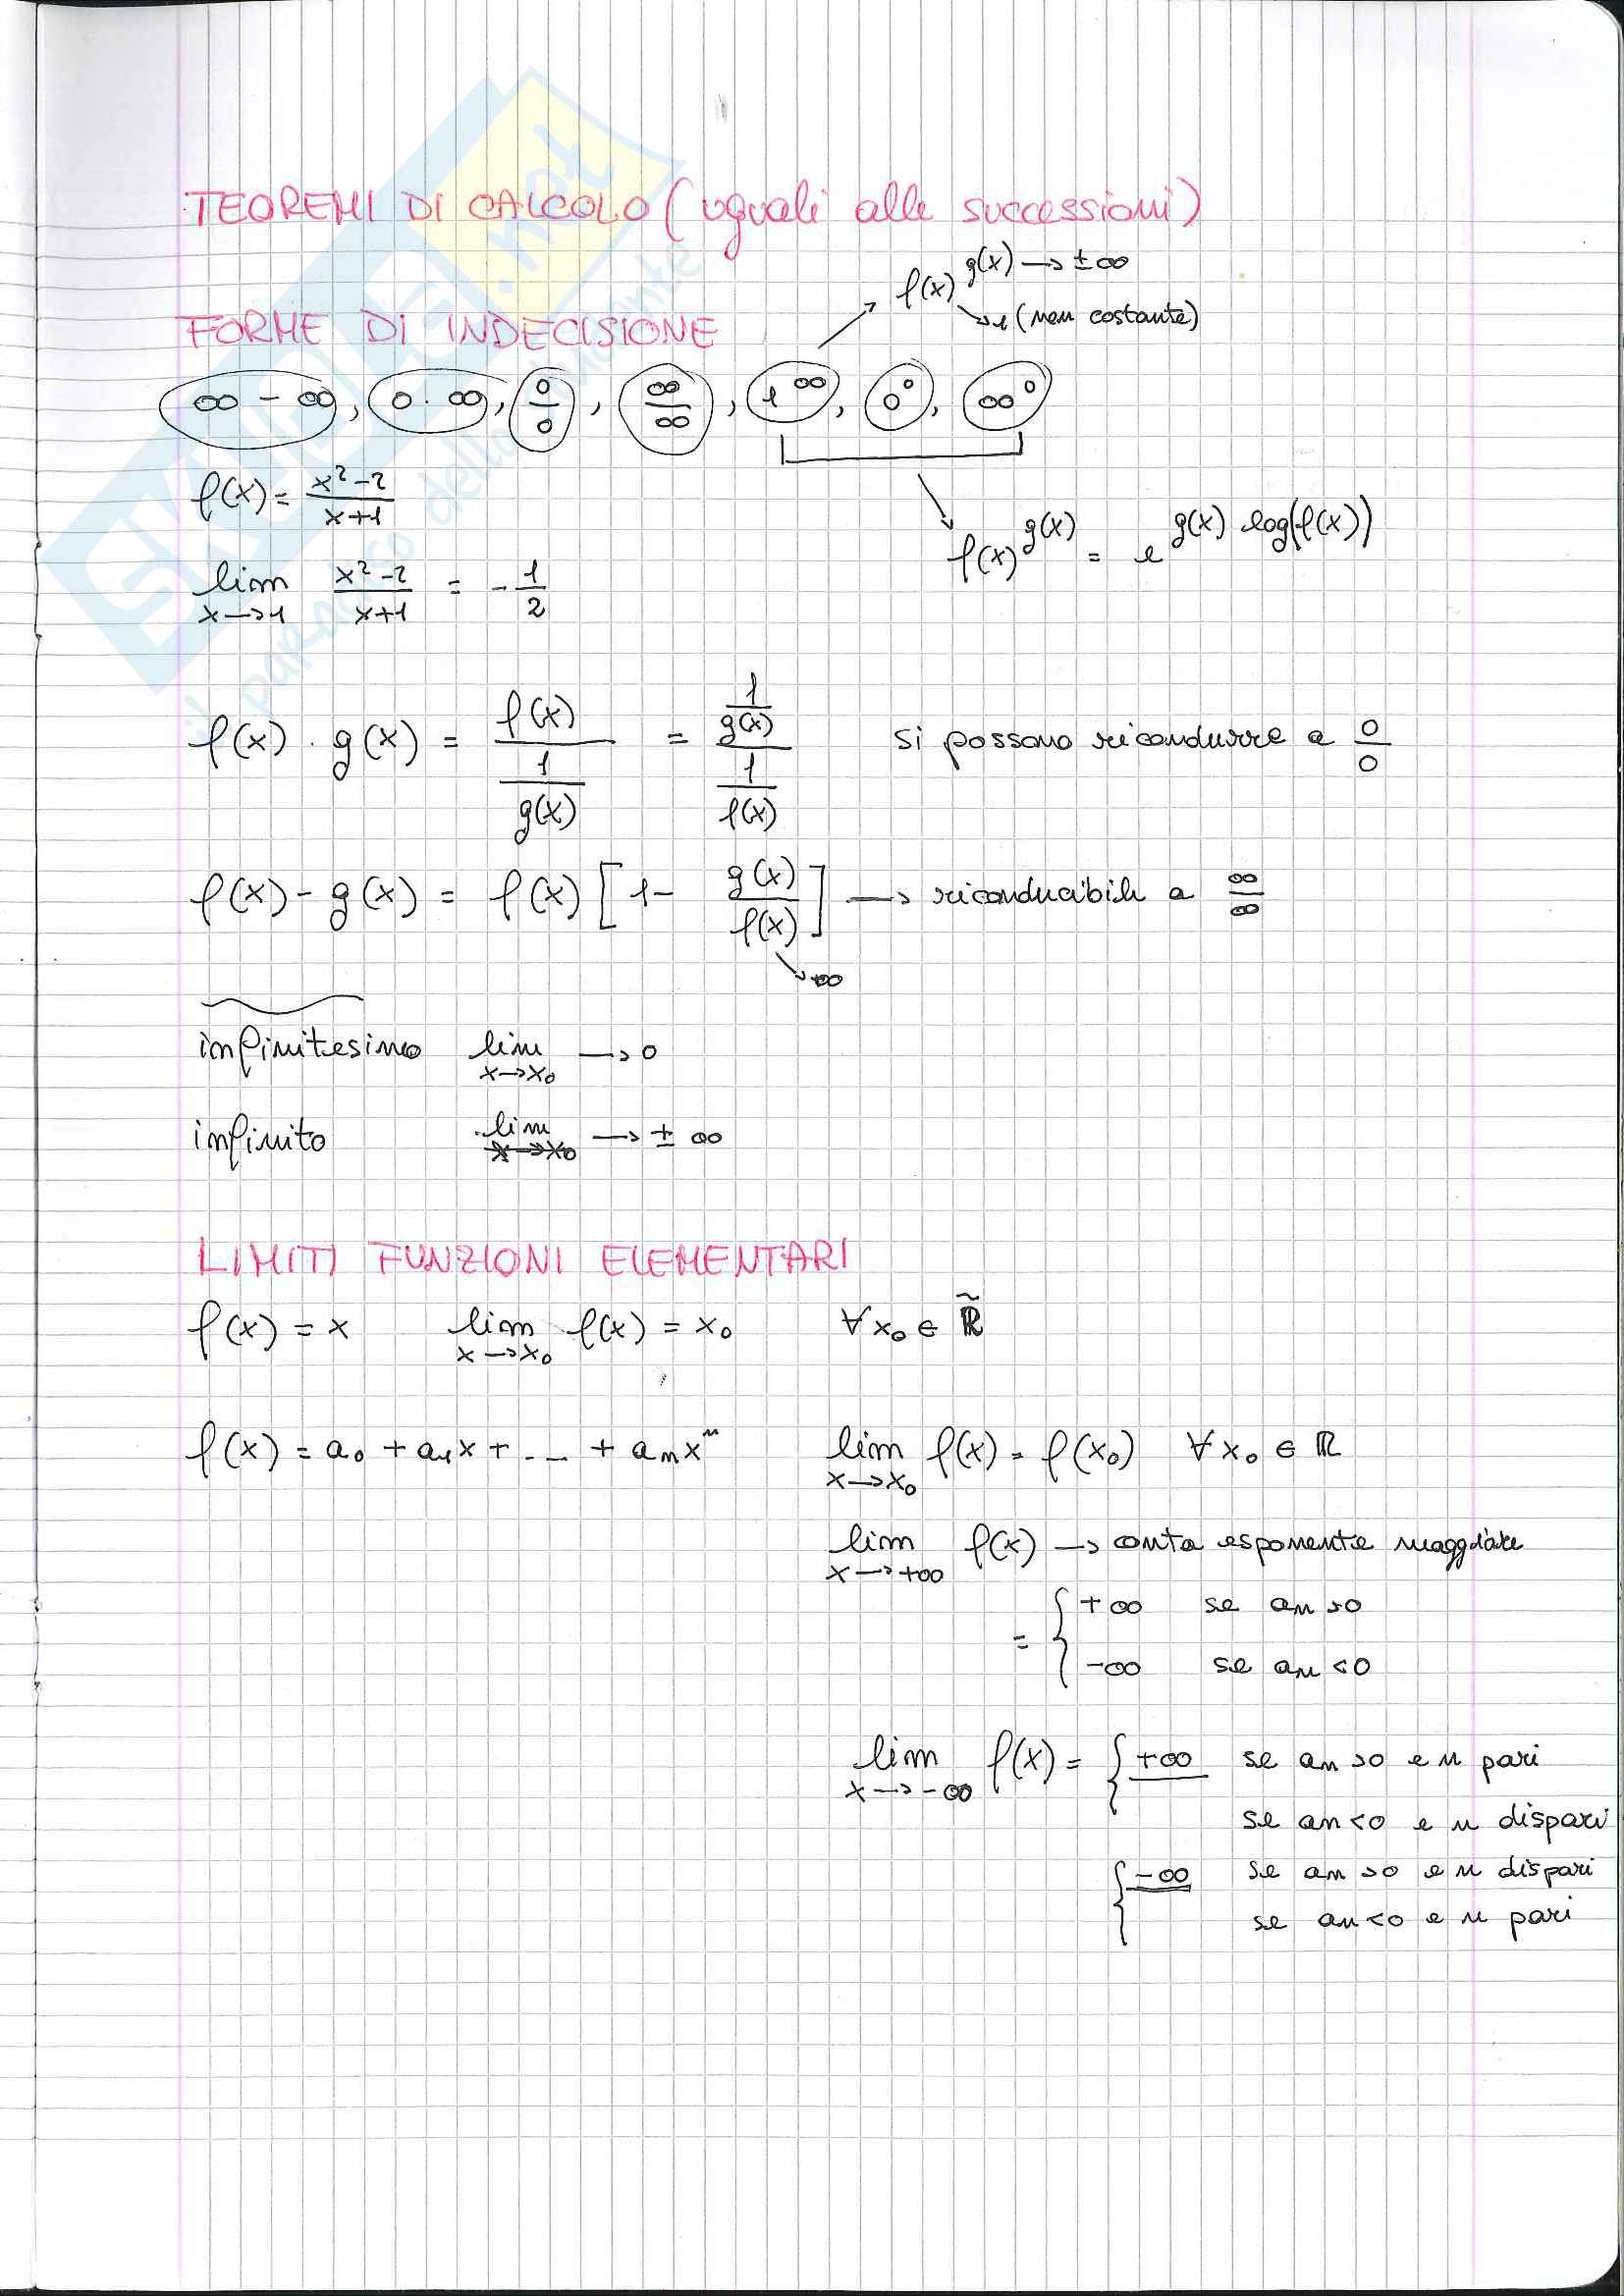 TEOREMI DI CALCOLO (uguali alle successioni)
FORME DI INDECISIONE
f(x)^g(x) → ±∞
→ 1 (non costante)
∞ - ∞, 0 · ∞, 0/0, ∞/∞, 1^∞, 0^0, ∞^0
f(x) = (x²-2)/(x+1)
f(x)^g(x) = e^(g(x) log(f(x)))
lim x→1 (x²-2)/(x+1) = -1/2
f(x) · g(x) = f(x)/(1/g(x)) = (1/g(x))/(1/f(x)) si possono ricondurre a 0/0
f(x) - g(x) = f(x) [1 - g(x)/f(x)] → riconducibili a ∞/∞
→ +∞
infinitesimo lim x→x₀ → 0
infinito lim x→x₀ → ± ∞
LIMITI FUNZIONI ELEMENTARI
f(x) = x lim x→x₀ f(x) = x₀ ∀ x₀ ∈ R̃
f(x) = a₀ + a₁x + ... + aₙxⁿ lim x→x₀ f(x) = f(x₀) ∀ x₀ ∈ ℝ
lim x→+∞ f(x) → conta esponente maggiore
= { +∞ se aₙ >0
-∞ se aₙ <0
lim x→-∞ f(x) = { +∞ se aₙ >0 e n pari
se aₙ <0 e n dispari
{ -∞ se aₙ >0 e n dispari
se aₙ <0 e n pari